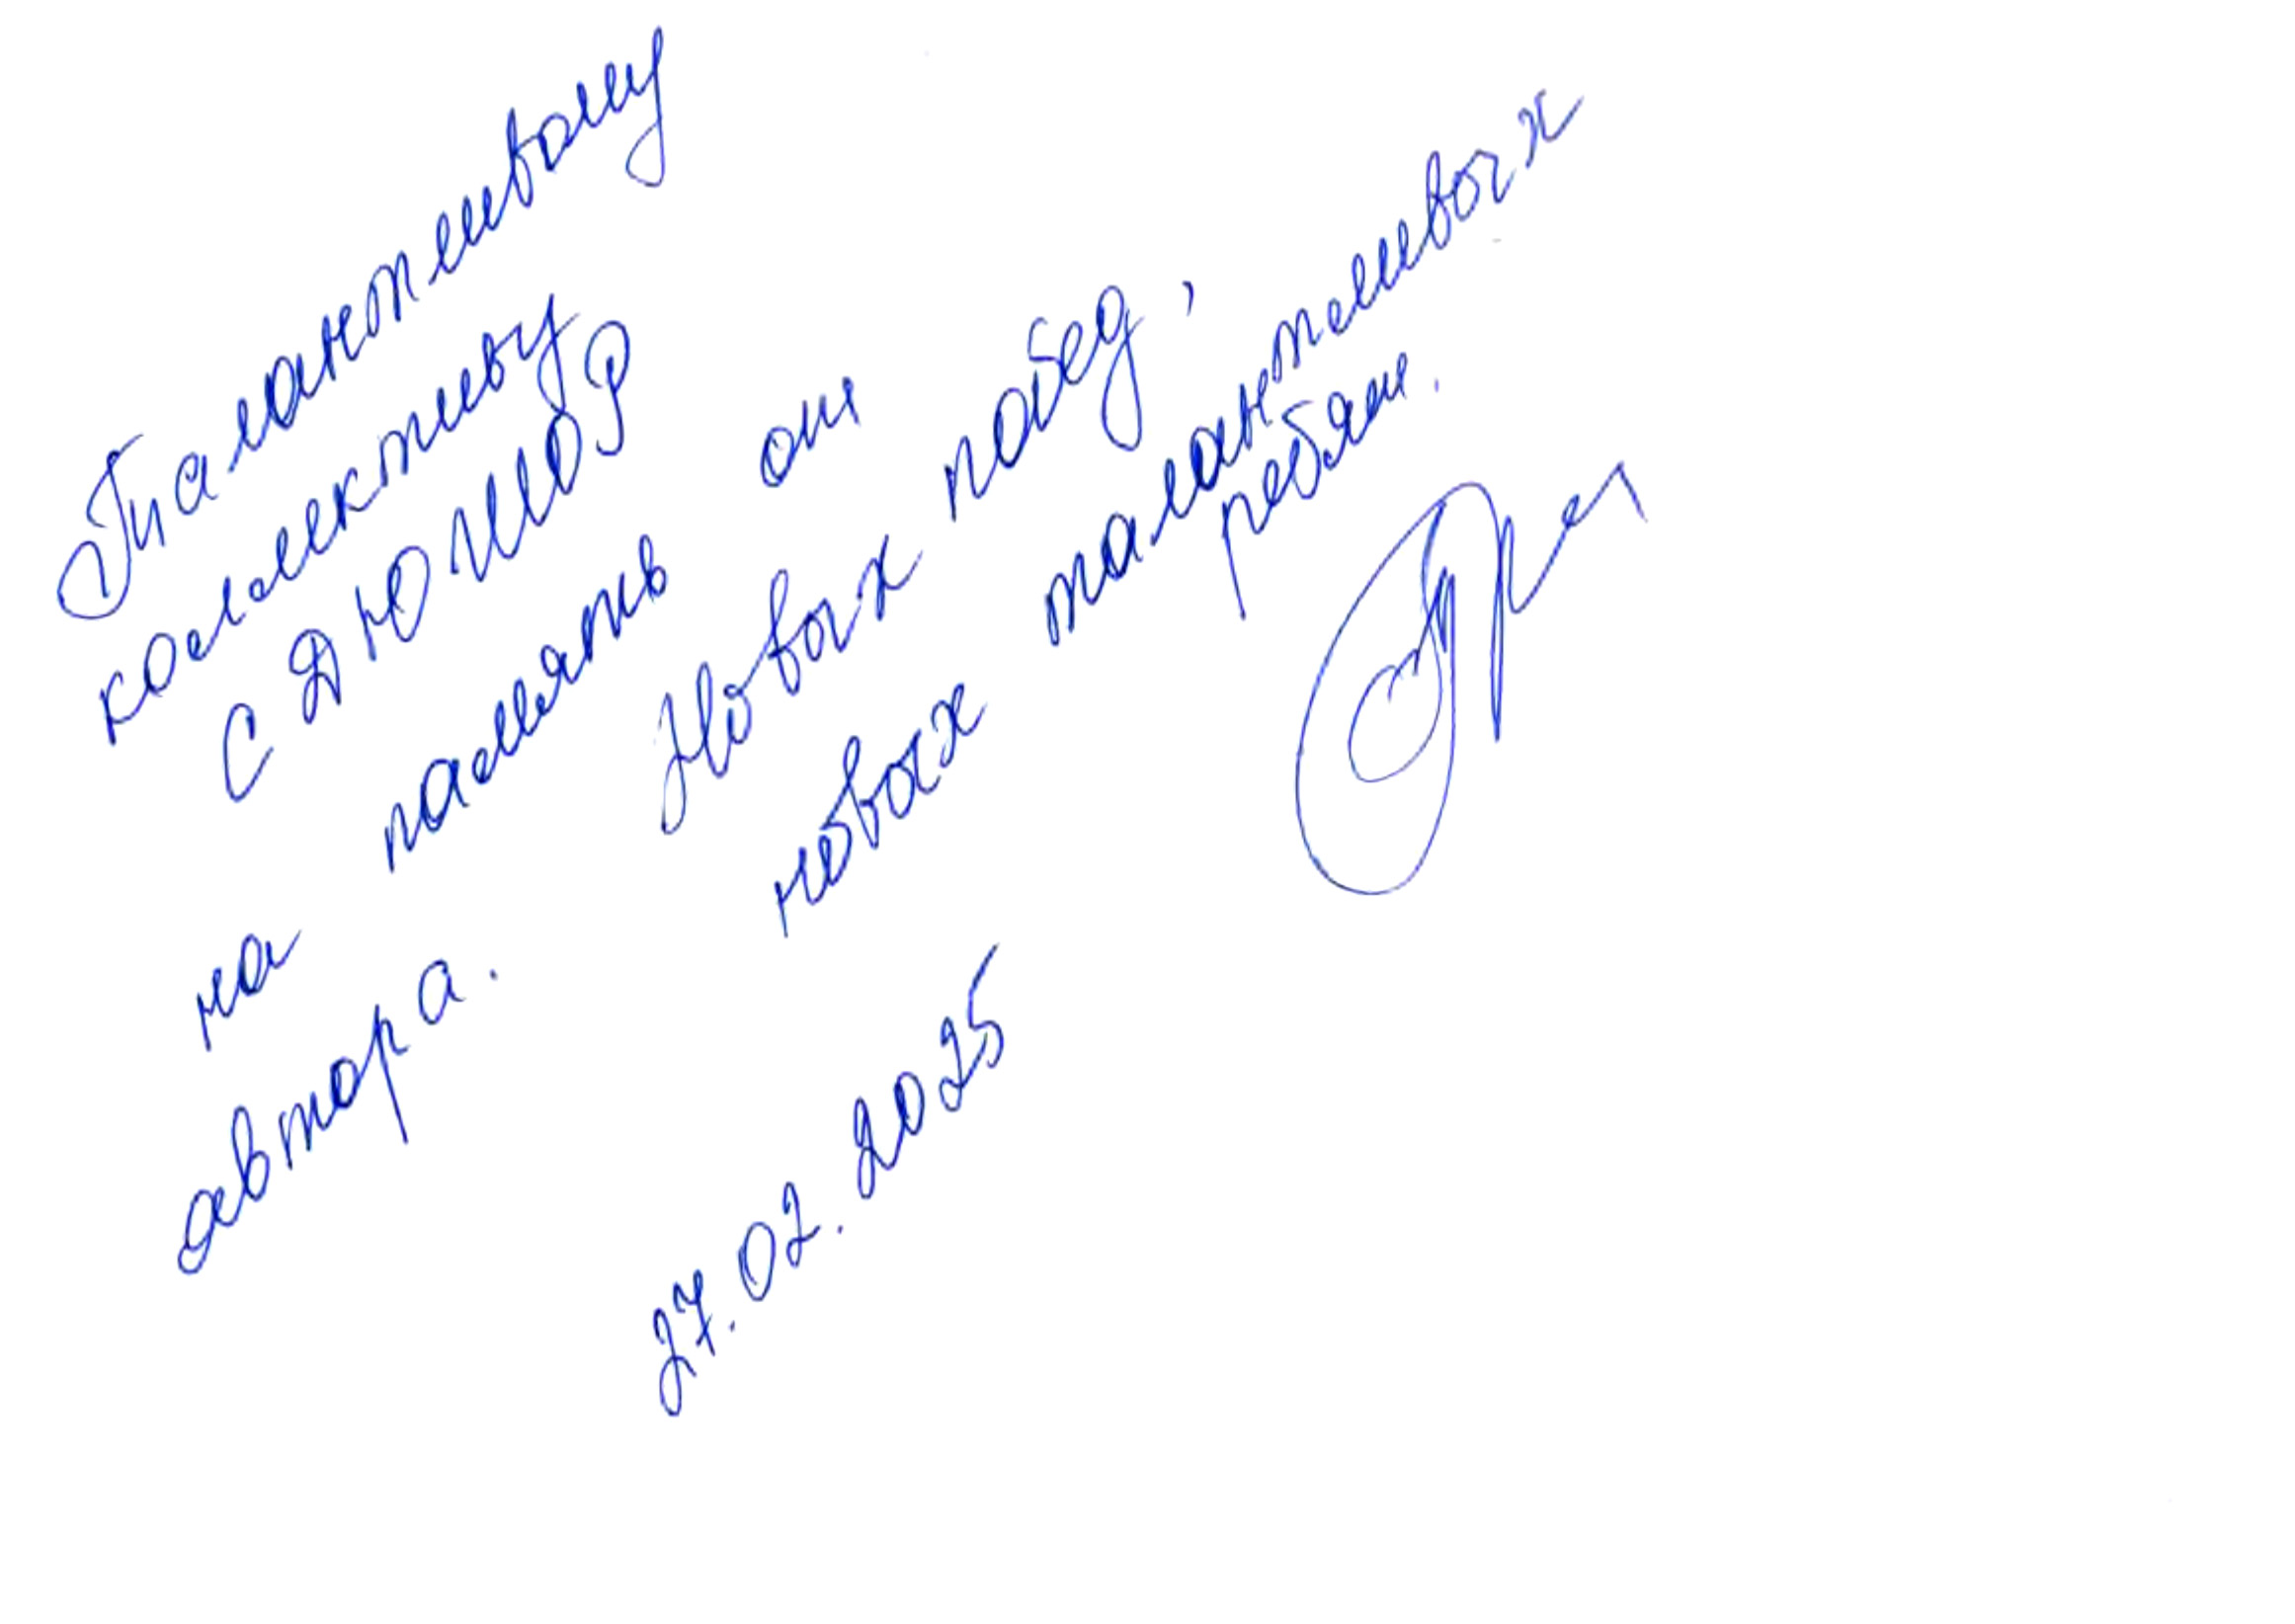 Талантливому
коллективу
СДЮШОР
на память от
автора.
Новых побед,
новых талантливых
ребят.
27.02.2025